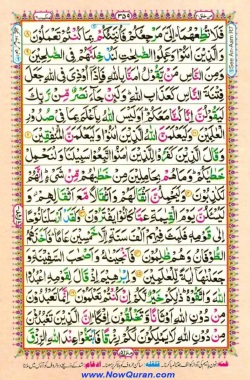 ۳۵۹
فَلَا تُطِعْهُمَا ؕ اِلَیَّ مَرْجِعُكُمْ فَاُنَبِّئُكُمْ بِمَا كُنْتُمْ تَعْمَلُوْنَ
وَالَّذِیْنَ اٰمَنُوْا وَعَمِلُوا الصّٰلِحٰتِ لَنُدْخِلَنَّهُمْ فِی الصّٰلِحِیْنَ
وَمِنَ النَّاسِ مَنْ یَّقُوْلُ اٰمَنَّا بِاللّٰهِ فَاِذَاۤ اُوْذِیَ فِی اللّٰهِ جَعَلَ
فِتْنَةَ النَّاسِ كَعَذَابِ اللّٰهِ ؕ وَلَئِنْ جَآءَ نَصْرٌ مِّنْ رَّبِّكَ
لَیَقُوْلُنَّ اِنَّا كُنَّا مَعَكُمْ ؕ اَوَلَیْسَ اللّٰهُ بِاَعْلَمَ بِمَا فِیْ صُدُوْرِ
الْعٰلَمِیْنَ وَلَیَعْلَمَنَّ اللّٰهُ الَّذِیْنَ اٰمَنُوْا وَلَیَعْلَمَنَّ الْمُنٰفِقِیْنَ
وَقَالَ الَّذِیْنَ كَفَرُوْا لِلَّذِیْنَ اٰمَنُوا اتَّبِعُوْا سَبِیْلَنَا وَلْنَحْمِلْ
خَطٰیٰكُمْ ؕ وَمَا هُمْ بِحٰمِلِیْنَ مِنْ خَطٰیٰهُمْ مِّنْ شَیْءٍ ؕ اِنَّهُمْ
لَكٰذِبُوْنَ وَلَیَحْمِلُنَّ اَثْقَالَهُمْ وَاَثْقَالًا مَّعَ اَثْقَالِهِمْ ؗ وَ
لَیُسْئَلُنَّ یَوْمَ الْقِیٰمَةِ عَمَّا كَانُوْا یَفْتَرُوْنَ وَلَقَدْ اَرْسَلْنَا نُوْحًا
اِلٰی قَوْمِهٖ فَلَبِثَ فِیْهِمْ اَلْفَ سَنَةٍ اِلَّا خَمْسِیْنَ عَامًا ؕ فَاَخَذَهُمُ
الطُّوْفَانُ وَهُمْ ظٰلِمُوْنَ فَاَنْجَیْنٰهُ وَاَصْحٰبَ السَّفِیْنَةِ وَ
جَعَلْنٰهَاۤ اٰیَةً لِّلْعٰلَمِیْنَ وَاِبْرٰهِیْمَ اِذْ قَالَ لِقَوْمِهِ اعْبُدُوا
اللّٰهَ وَاتَّقُوْهُ ؕ ذٰلِكُمْ خَیْرٌ لَّكُمْ اِنْ كُنْتُمْ تَعْلَمُوْنَ اِنَّمَا تَعْبُدُوْنَ
مِنْ دُوْنِ اللّٰهِ اَوْثَانًا وَّتَخْلُقُوْنَ اِفْكًا ؕ اِنَّ الَّذِیْنَ تَعْبُدُوْنَ
مِنْ دُوْنِ اللّٰهِ لَا یَمْلِكُوْنَ لَكُمْ رِزْقًا فَابْتَغُوْا عِنْدَ اللّٰهِ الرِّزْقَ
www.NowQuran.com